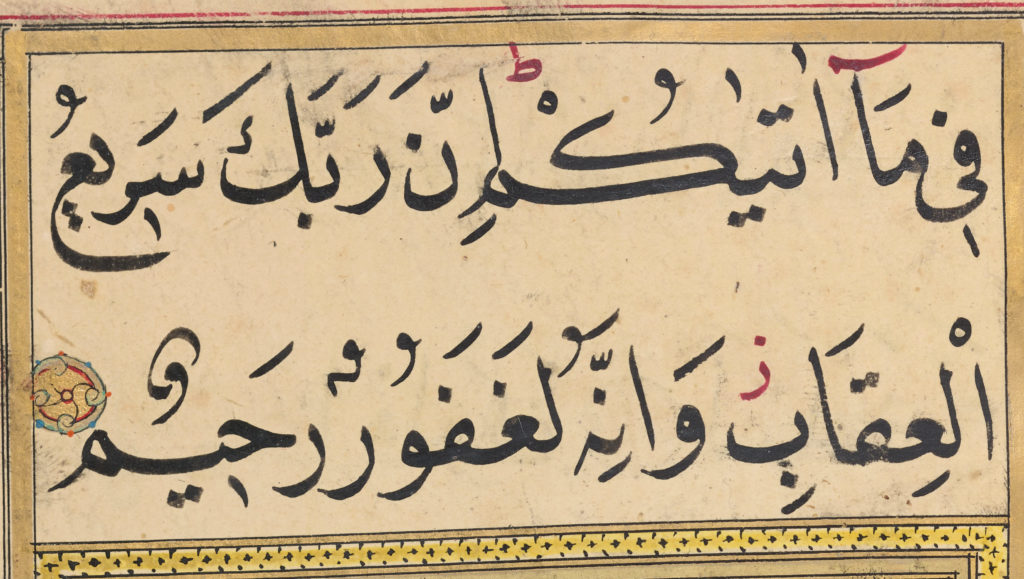 فِي مَآ اٰتٰيكُمْ ط اِنَّ رَبَّكَ سَرِيعُ
الْعِقَابِ ز وَاِنَّهُ لَغَفُورٌ رَحِيمٌ